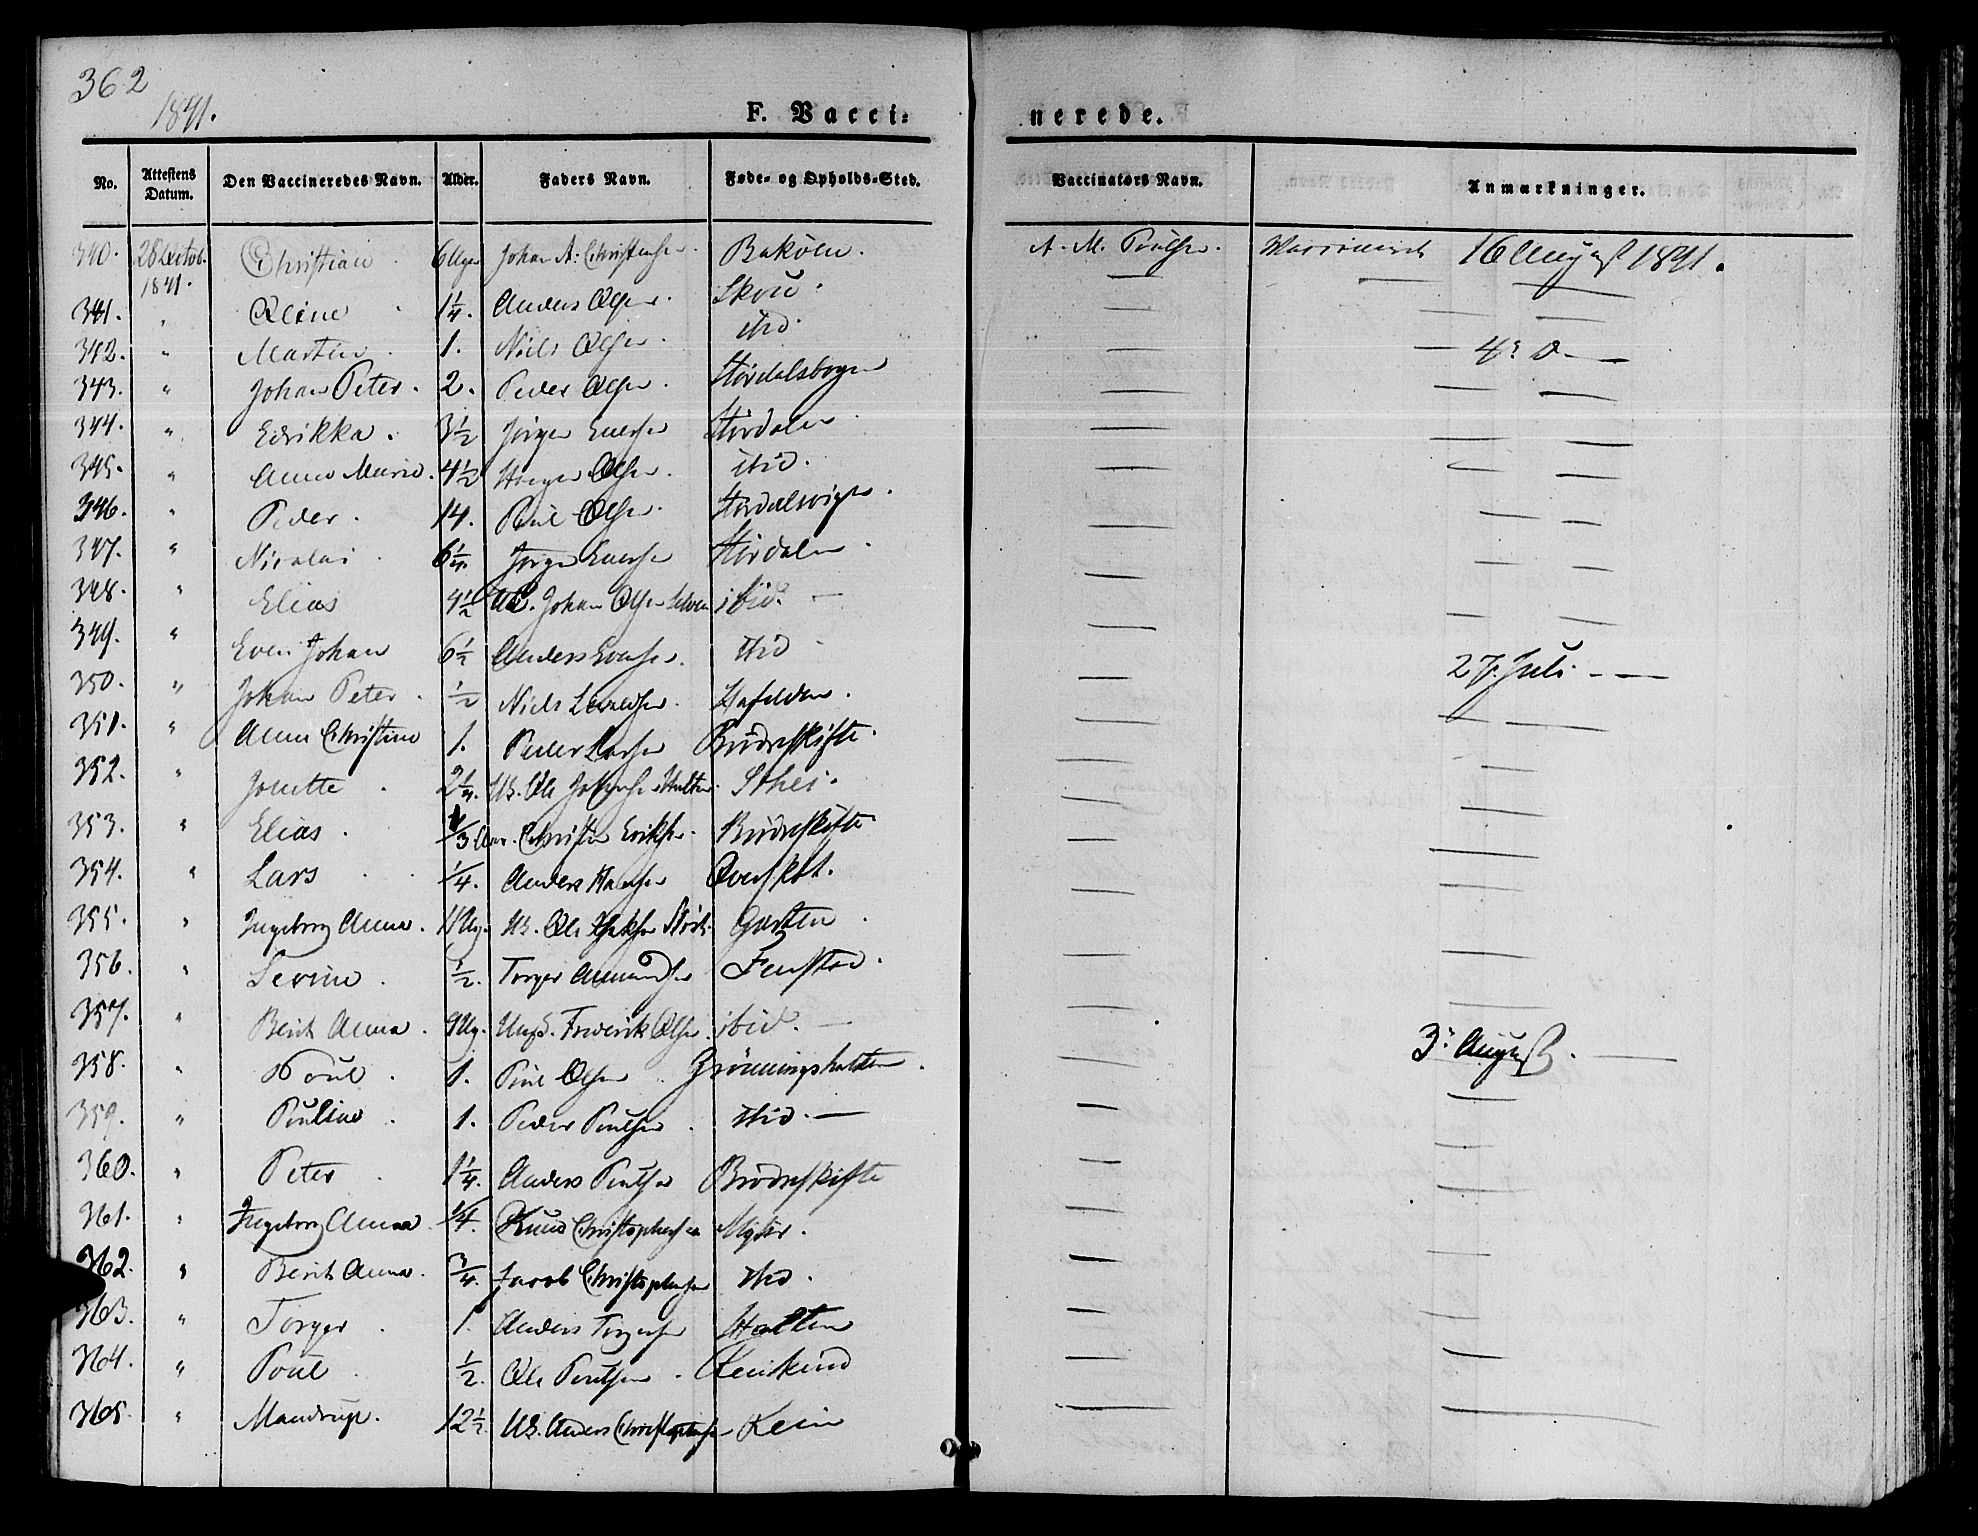 362
1841.
F. Vacci- nerede.
No. Attestens Datum. Den Vaccineredes Navn. Alder. Faders Navn. Føde- og Opholds-Sted. Vaccinators Navn. Anmærkninger.
340. 28 Octob. 1841. Christian 6 Uger Johan A. Christens. A. M. Poulsen. 16 August 1841.
341. " Oline 1 1/4. Anders Olsen. Skou. — — —
342. " Martin 1. Niels Olsen. ibid. — — —
343. " Johan Peter. 2. Peder Olsen. Størdalsbogen — — 4de D. —
344. " Edrikka. 3 1/2 Jørgen Evensen Størdalen — — —
345. " Anna Maria. 4 1/2 Olsen. ibid. — — —
346. " Peder. 14. Poul Olsen. Størdalsvigen. — — —
347. " Nicolai 6 1/4. Jørgen Evensen Størdalen. — — —
348. " Elias 4 1/2 Johan Olsen ibid. — — — —
349. " Even Johan 6 1/2 Anders Evensen. ibid — — —
350. " Johan Peter. 1/2 Niels — 27. Juli — —
351. " Anna Christine 1. Peder Larsen Brødreskifte. — — —
352. " Jonette 2 1/4. Ub. Ole — —
353. " Elias. Christen Eriksen. Brødreskifte — —
354. " Lars 1/4. Anders Hansen — —
355. " Ingeborg Anna. 11 Ug. Ub. Ole Garten — —
356. " Serine. 1/2. Torger Amundsen Fenstad. — —
357. " Berit Anna. 9 Ug. Ungk. Frederik Olsen. ibid. — — —
358. " Poul. 1. Poul Olsen Grønningsholten. — 3de August. —
359. " Pouline. 1. Peder Poulsen. ibid. — — —
360. " Peter 1 1/4. Anders Poulsen Brødreskifte — —
361. " Ingeborg Anna 1/4. Knud Christophersen — —
362. " Berit Anna. 3/4. Jacob Christophersen ibid. — —
363. " Torger 1. Anders Torgersen Holten — —
364. " Poul 1/2. Ole Poulsen. — —
365. " Mandrup. 12 1/2. Ub. Anders Christophersen — —